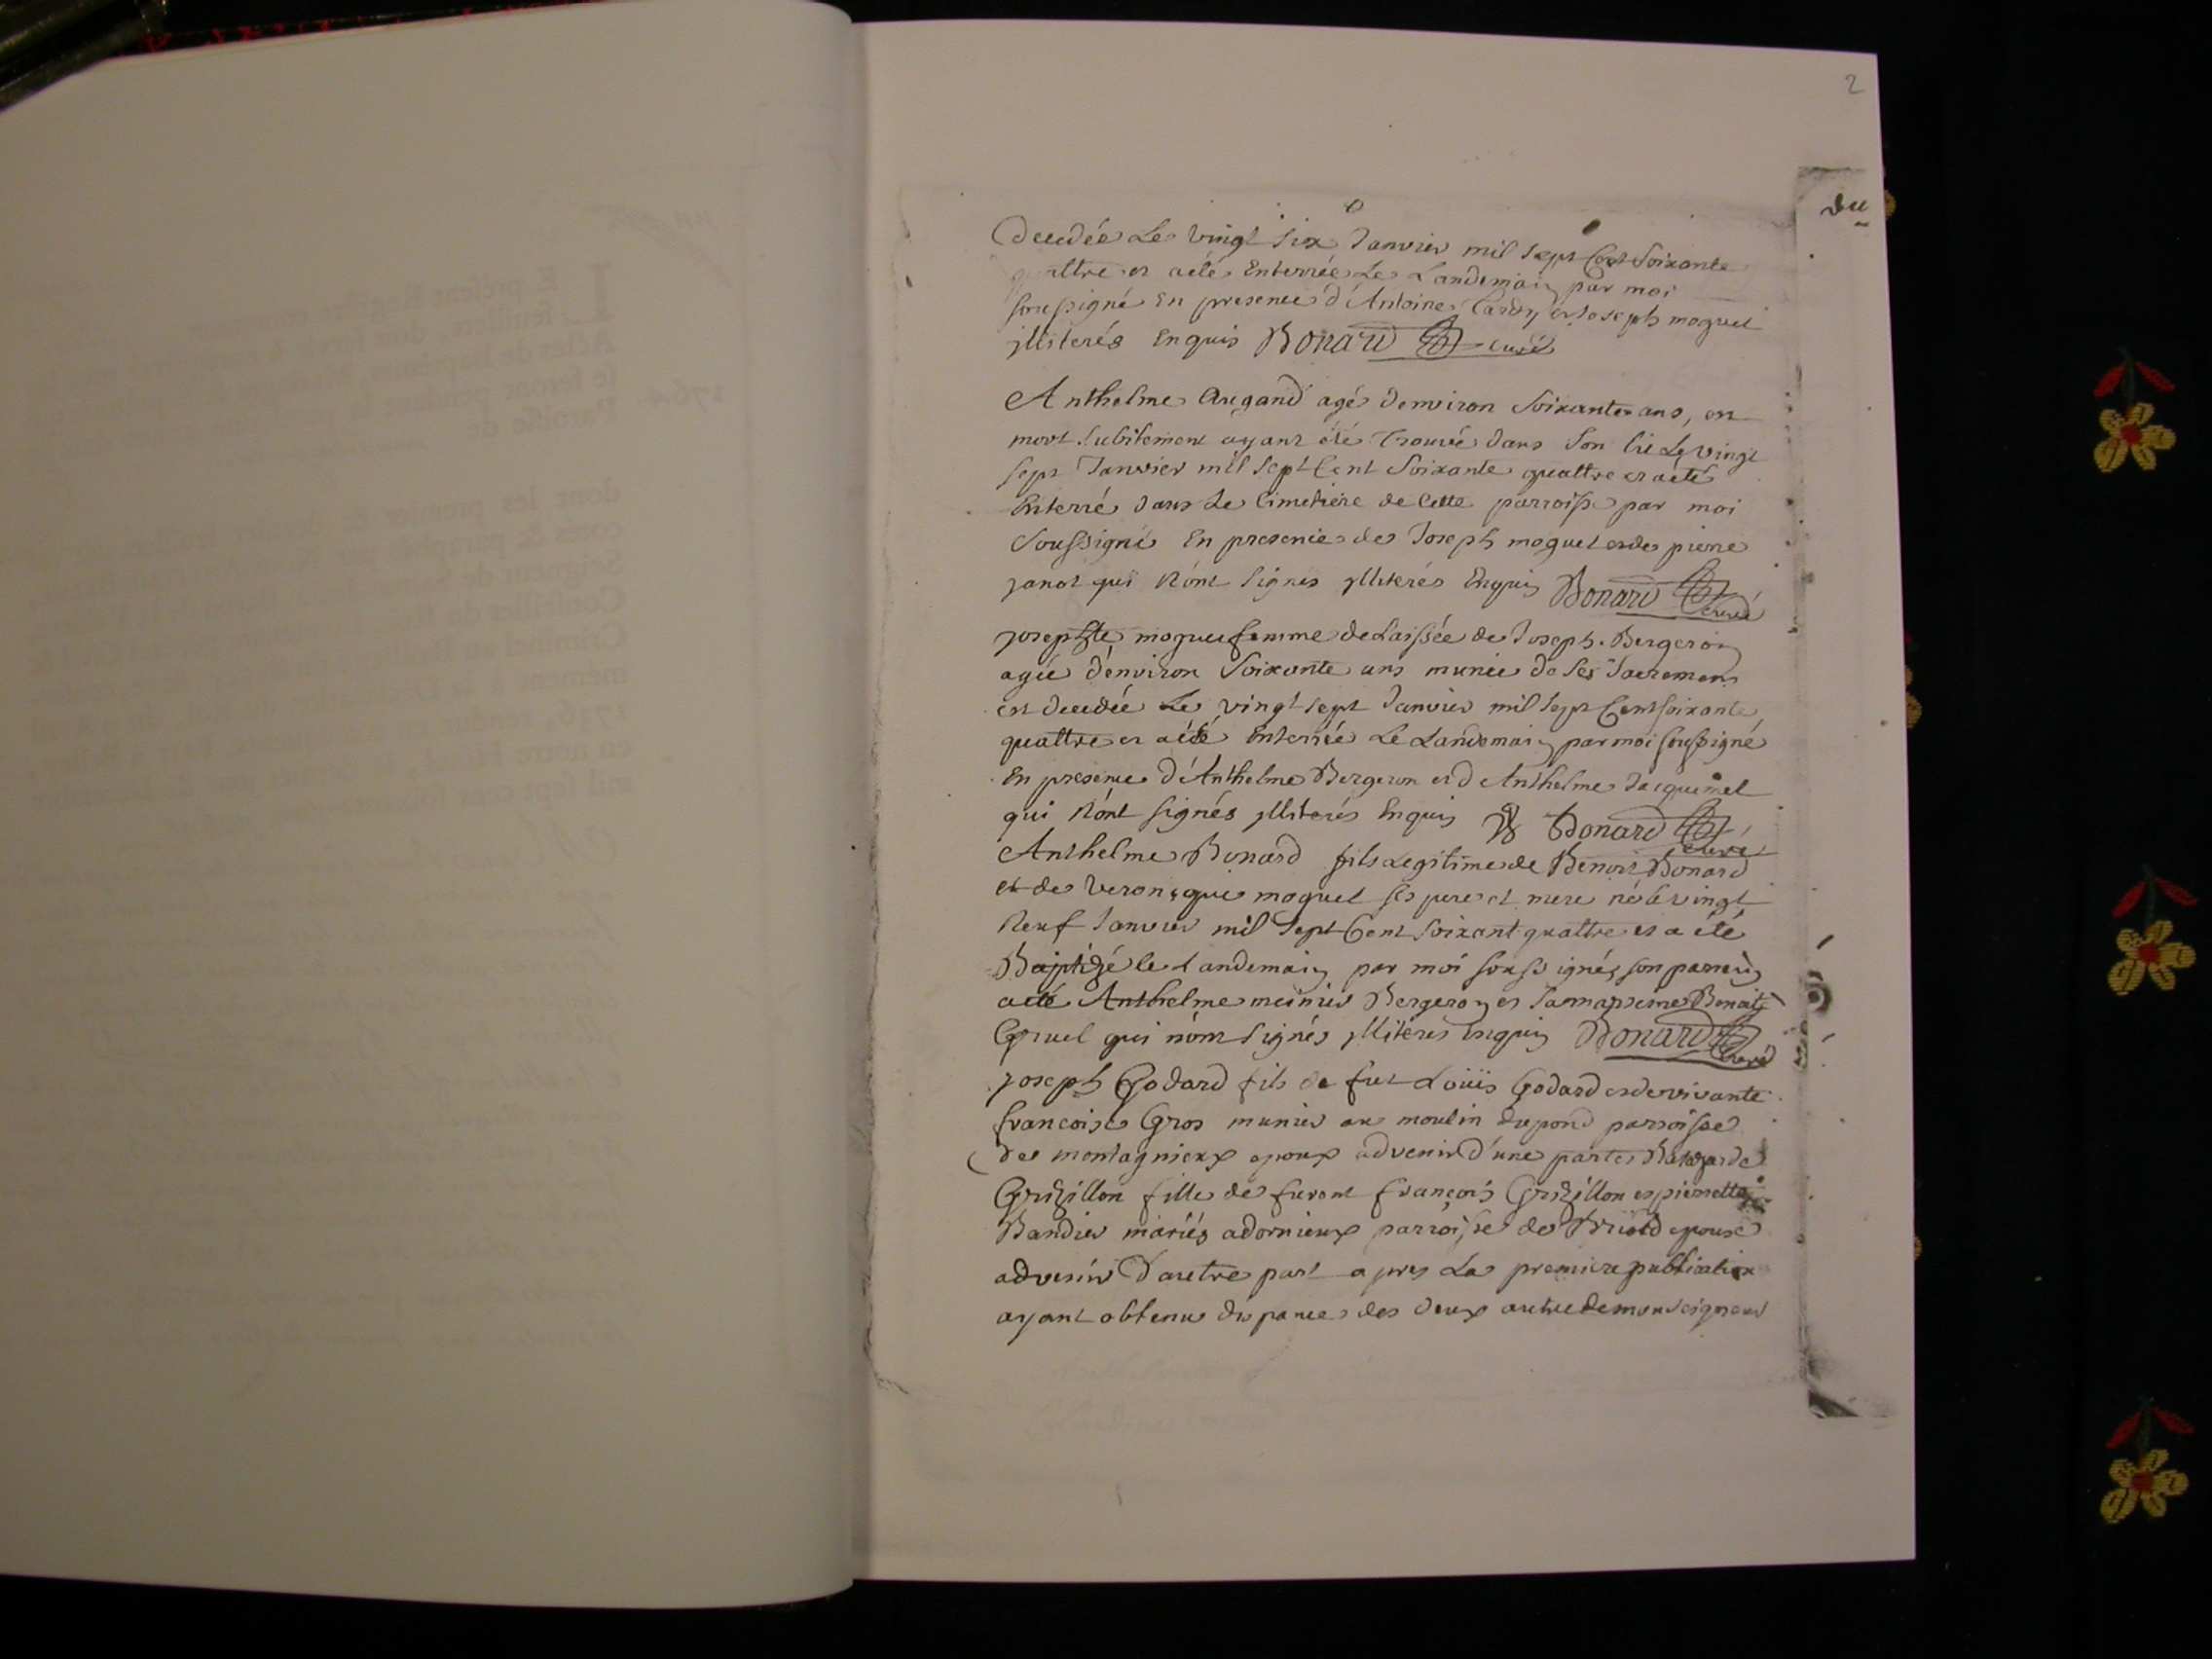 2
du
decedée Le vingt six Janvier mil sept Cent Soixante
quattre et aété Enterrée Le Landemain par moi
soussigné En presence d'Antoine Cardy et Joseph moguet
jlliterés Enquis Bonard curé
Anthelme Augand agé d'environ Soixante ans, est
mort Subitement ayant été Trouvé dans Son lit Le vingt
sept Janvier mil Sept Cent Soixante quattre et aété
Enterré dans Le Cimetière de Cette parroisse par moi
Soussigné En presence de Joseph moguet et de pierre
janot qui N'ont Signés jlliterés Enquis Bonard Curé
josephte moguet femme delaissée de Joseph Bergeron
agée d'environ Soixante ans munie de Ses Sacremens
est decedée Le vingt sept Janvier mil Sept Cent soixante
quattre et aété Enterrée Le Landemain par moi soussigné
En presence d'Anthelme Bergeron et d'Anthelme Jacquemet
qui N'ont Signés jlliterés Enquis Bonard curé
Anthelme Bonard fils Legitime de Benoit Bonard
et de Veronique moguet ses pere et mere né le vingt
Neuf Janvier mil Sept Cent Soixant quattre et a été
Baptizé le Landemain par moi soussigné, son parrein
aété Anthelme meunier Bergeron et Sa marreine Benoite
Gruel qui n'ont Signés jlliterés Enquis Bonard Curé
joseph Godard fils de fut Loüis Godard et de vivante
francoise Gros munier au moulin du pond parroisse
de montagnieux epoux advenir d'une part et
Grizillon fille de furent françois Grizillon et pierrette
Bandier mariés adornieux parroisse de Briord epouse
advenir D'autre part apres La premiere publication
ayant obtenu dispance des deux autre de monseigneur